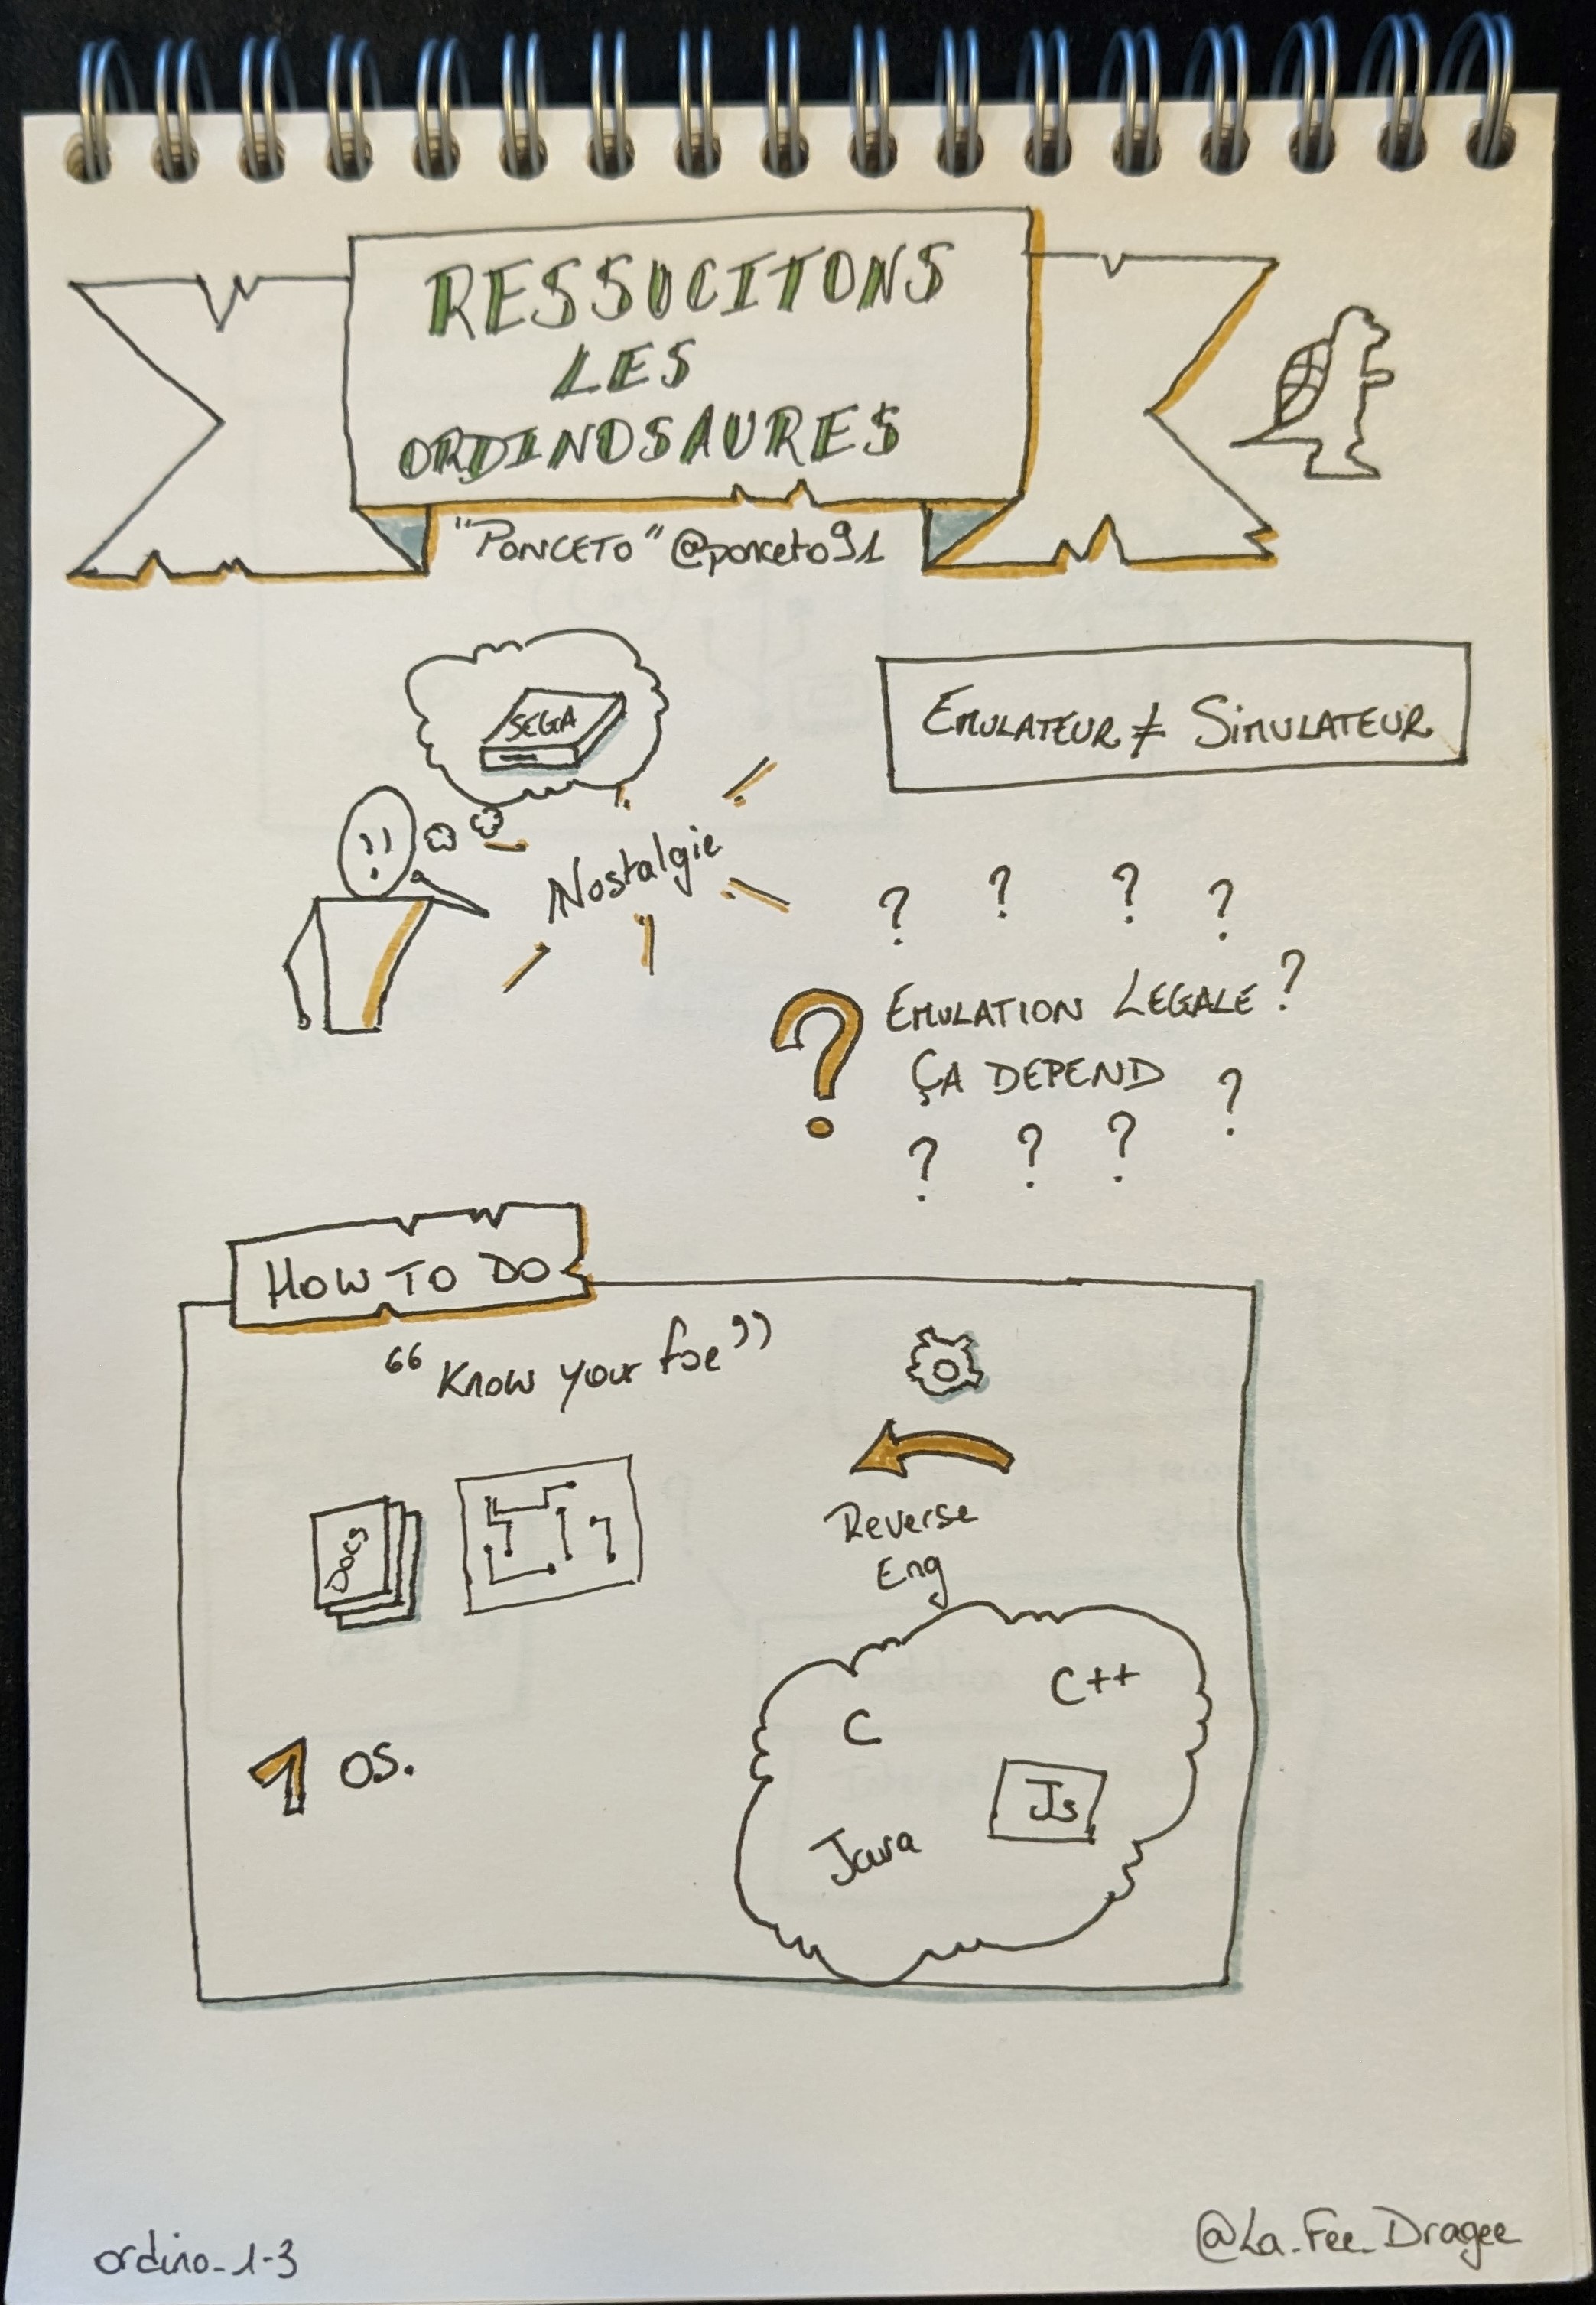 RESSUCITONS
LES
ORDINOSAURES
"PONCETO" @ponceto91
SEGA
Nostalgie
EMULATEUR ≠ SIMULATEUR
? ? ? ?
? EMULATION LEGALE ?
ÇA DEPEND ?
? ? ?
HOW TO DO
"Know your foe"
Docs
Reverse
Eng
1 OS.
C
C++
Java
Js
ordino_1-3
@La_Fee_Dragee